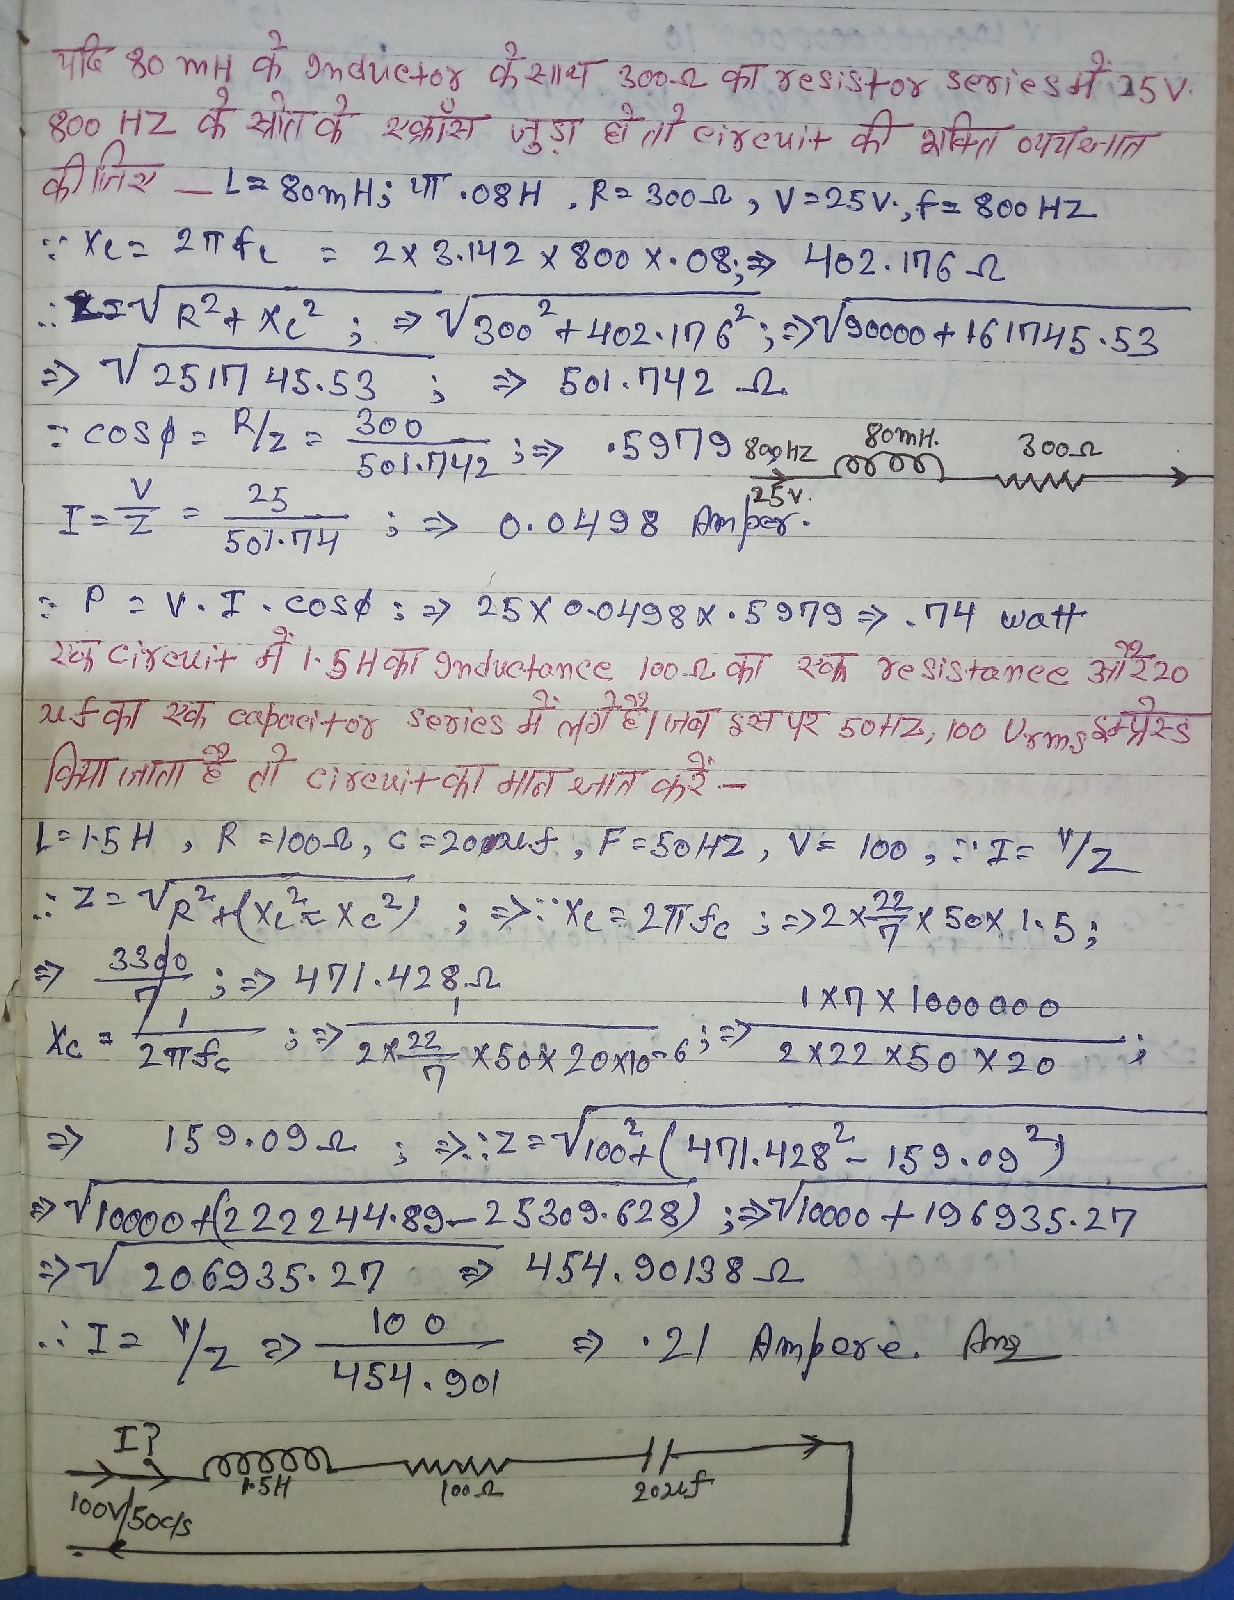 यदि 80 mH के Inductor के साथ 300Ω का resistor series में 25V.
800 HZ के स्रोत के एक्रॉस जुड़ा हो तो circuit की शक्ति व्यय ज्ञात
कीजिए — L = 80mH; या .08H , R = 300Ω , V = 25V., f = 800 HZ
∵ XL = 2πfL = 2 x 3.142 x 800 x .08; ⇒ 402.176 Ω
∴ Z = √R² + XL² ; ⇒ √300² + 402.176² ; ⇒ √90000 + 161745.53
⇒ √251745.53 ; ⇒ 501.742 Ω
∵ cosϕ = R/Z = 300/501.742 ; ⇒ .5979
800HZ 80mH. 300Ω
25V.
I = V/Z = 25/501.74 ; ⇒ 0.0498 Amper.
∵ P = V . I . cosϕ ; ⇒ 25 x 0.0498 x .5979 ⇒ .74 watt
एक circuit में 1.5H का Inductance 100Ω का एक resistance और 20
uf का एक capacitor series में लगे हैं। जब इस पर 50HZ, 100 Vrms इम्प्रेस्ड
किया जाता है तो circuit का मान ज्ञात करें —
L = 1.5 H , R = 100Ω , C = 20uf , F = 50HZ , V = 100 , ∵ I = V/Z
∴ Z = √R² + (XL² - XC²) ; ⇒ ∵ XL = 2πfc ; ⇒ 2 x 22/7 x 50 x 1.5 ;
⇒ 3300/7 ; ⇒ 471.428Ω
XC = 1/2πfc ; ⇒ 1/2 x 22/7 x 50 x 20 x 10-6 ; ⇒ 1 x 7 x 1000000/2 x 22 x 50 x 20 ;
⇒ 159.09Ω ; ⇒ ∴ Z = √100² + (471.428² - 159.09²)
⇒ √10000 + (222244.89 - 25309.628) ; ⇒ √10000 + 196935.27
⇒ √206935.27 ⇒ 454.90138 Ω
∴ I = V/Z ⇒ 100/454.901 ⇒ .21 Ampere. Ans
I?
1.5H 100Ω 20uf
100V/50c/s